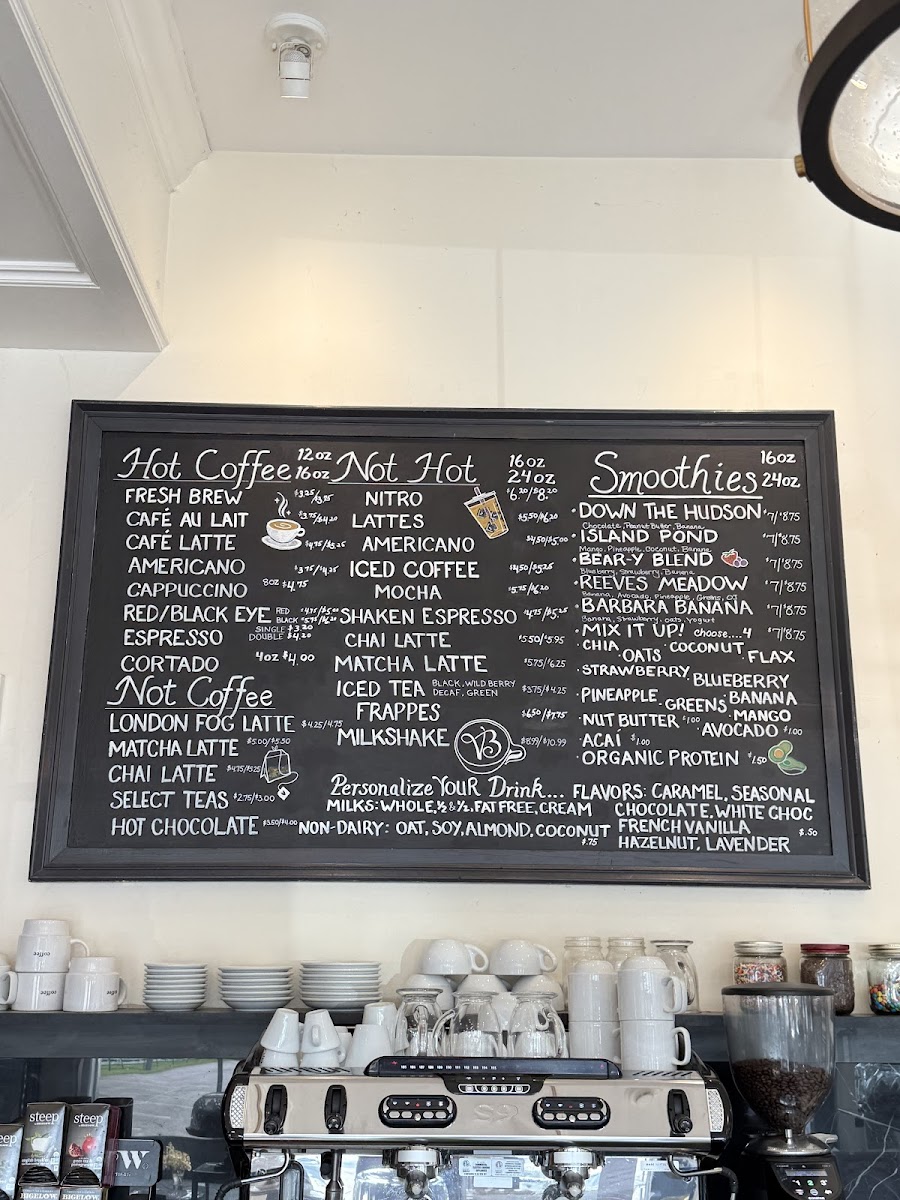 Hot Coffee 12oz 16oz
FRESH BREW $3.25/$3.95
CAFÉ AU LAIT $3.75/$4.20
CAFÉ LATTE $4.75/$5.25
AMERICANO $3.75/$4.25
CAPPUCCINO 8oz $4.75
RED/BLACK EYE RED BLACK
ESPRESSO SINGLE $3.20 DOUBLE $4.20
CORTADO 4oz $4.00
Not Coffee
LONDON FOG LATTE $4.25/4.75
MATCHA LATTE $5.00/$5.50
CHAI LATTE $4.75/$5.25
SELECT TEAS $2.75/$3.00
HOT CHOCOLATE $3.50/$4.00
Not Hot 16oz 24oz
NITRO $6.20/$8.20
LATTES $5.50/$6.20
AMERICANO $4.50/$5.00
ICED COFFEE $4.50/$5.25
MOCHA $5.75/$6.20
SHAKEN ESPRESSO $4.75/$5.25
CHAI LATTE $5.50/$5.95
MATCHA LATTE $5.75/6.25
ICED TEA BLACK, WILD BERRY DECAF, GREEN $3.75/$4.25
FRAPPES $6.50/$7.75
MILKSHAKE $8.99/$10.99
VB
Smoothies 16oz 24oz
· DOWN THE HUDSON $7/$8.75
Chocolate, Peanut Butter, Banana
· ISLAND POND $7/$8.75
Mango, Pineapple, Coconut, Banana
· BEAR-Y BLEND $7/$8.75
Blueberry, Strawberry, Banana
· REEVES MEADOW $7/$8.75
Banana, Avocado, Pineapple, Greens, OJ
· BARBARA BANANA $7/$8.75
Banana, Strawberry, oats, yogurt
· MIX IT UP! choose....4 $7/8.75
· CHIA · OATS · COCONUT · FLAX
· STRAWBERRY · BLUEBERRY
· PINEAPPLE · GREENS · BANANA
· NUT BUTTER $1.00 · MANGO
· AVOCADO $1.00
· ACAÍ $1.00
· ORGANIC PROTEIN $1.50
Personalize Your Drink...
MILKS: WHOLE, ½ & ½, FAT FREE, CREAM
NON-DAIRY: OAT, SOY, ALMOND, COCONUT
$.75
FLAVORS: CARAMEL, SEASONAL
CHOCOLATE, WHITE CHOC
FRENCH VANILLA $.50
HAZELNUT, LAVENDER
coffee
coffee
coffee
steep
steep
BIGELOW